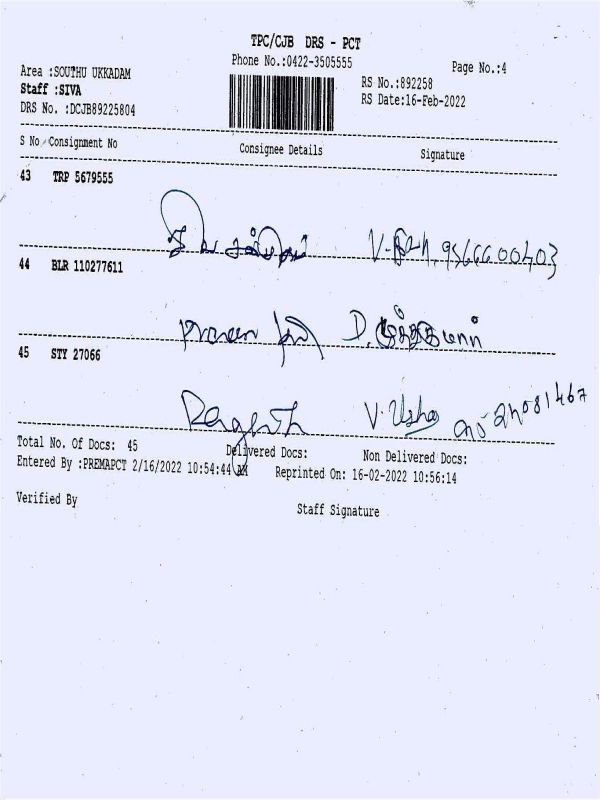 TPC/CJB DRS - PCT
Phone No.:0422-3505555
Page No.:4
Area :SOUTHU UKKADAM
RS No.:892258
Staff :SIVA
RS Date:16-Feb-2022
DRS No. :DCJB89225804
S No Consignment No Consignee Details Signature
43 TRP 5679555
44 BLR 110277611
D. முத்துகுமார்
45 STY 27066
V. Usha
Total No. Of Docs: 45 Delivered Docs: Non Delivered Docs:
Entered By :PREMAPCT 2/16/2022 10:54:44 AM Reprinted On: 16-02-2022 10:56:14
Verified By
Staff Signature